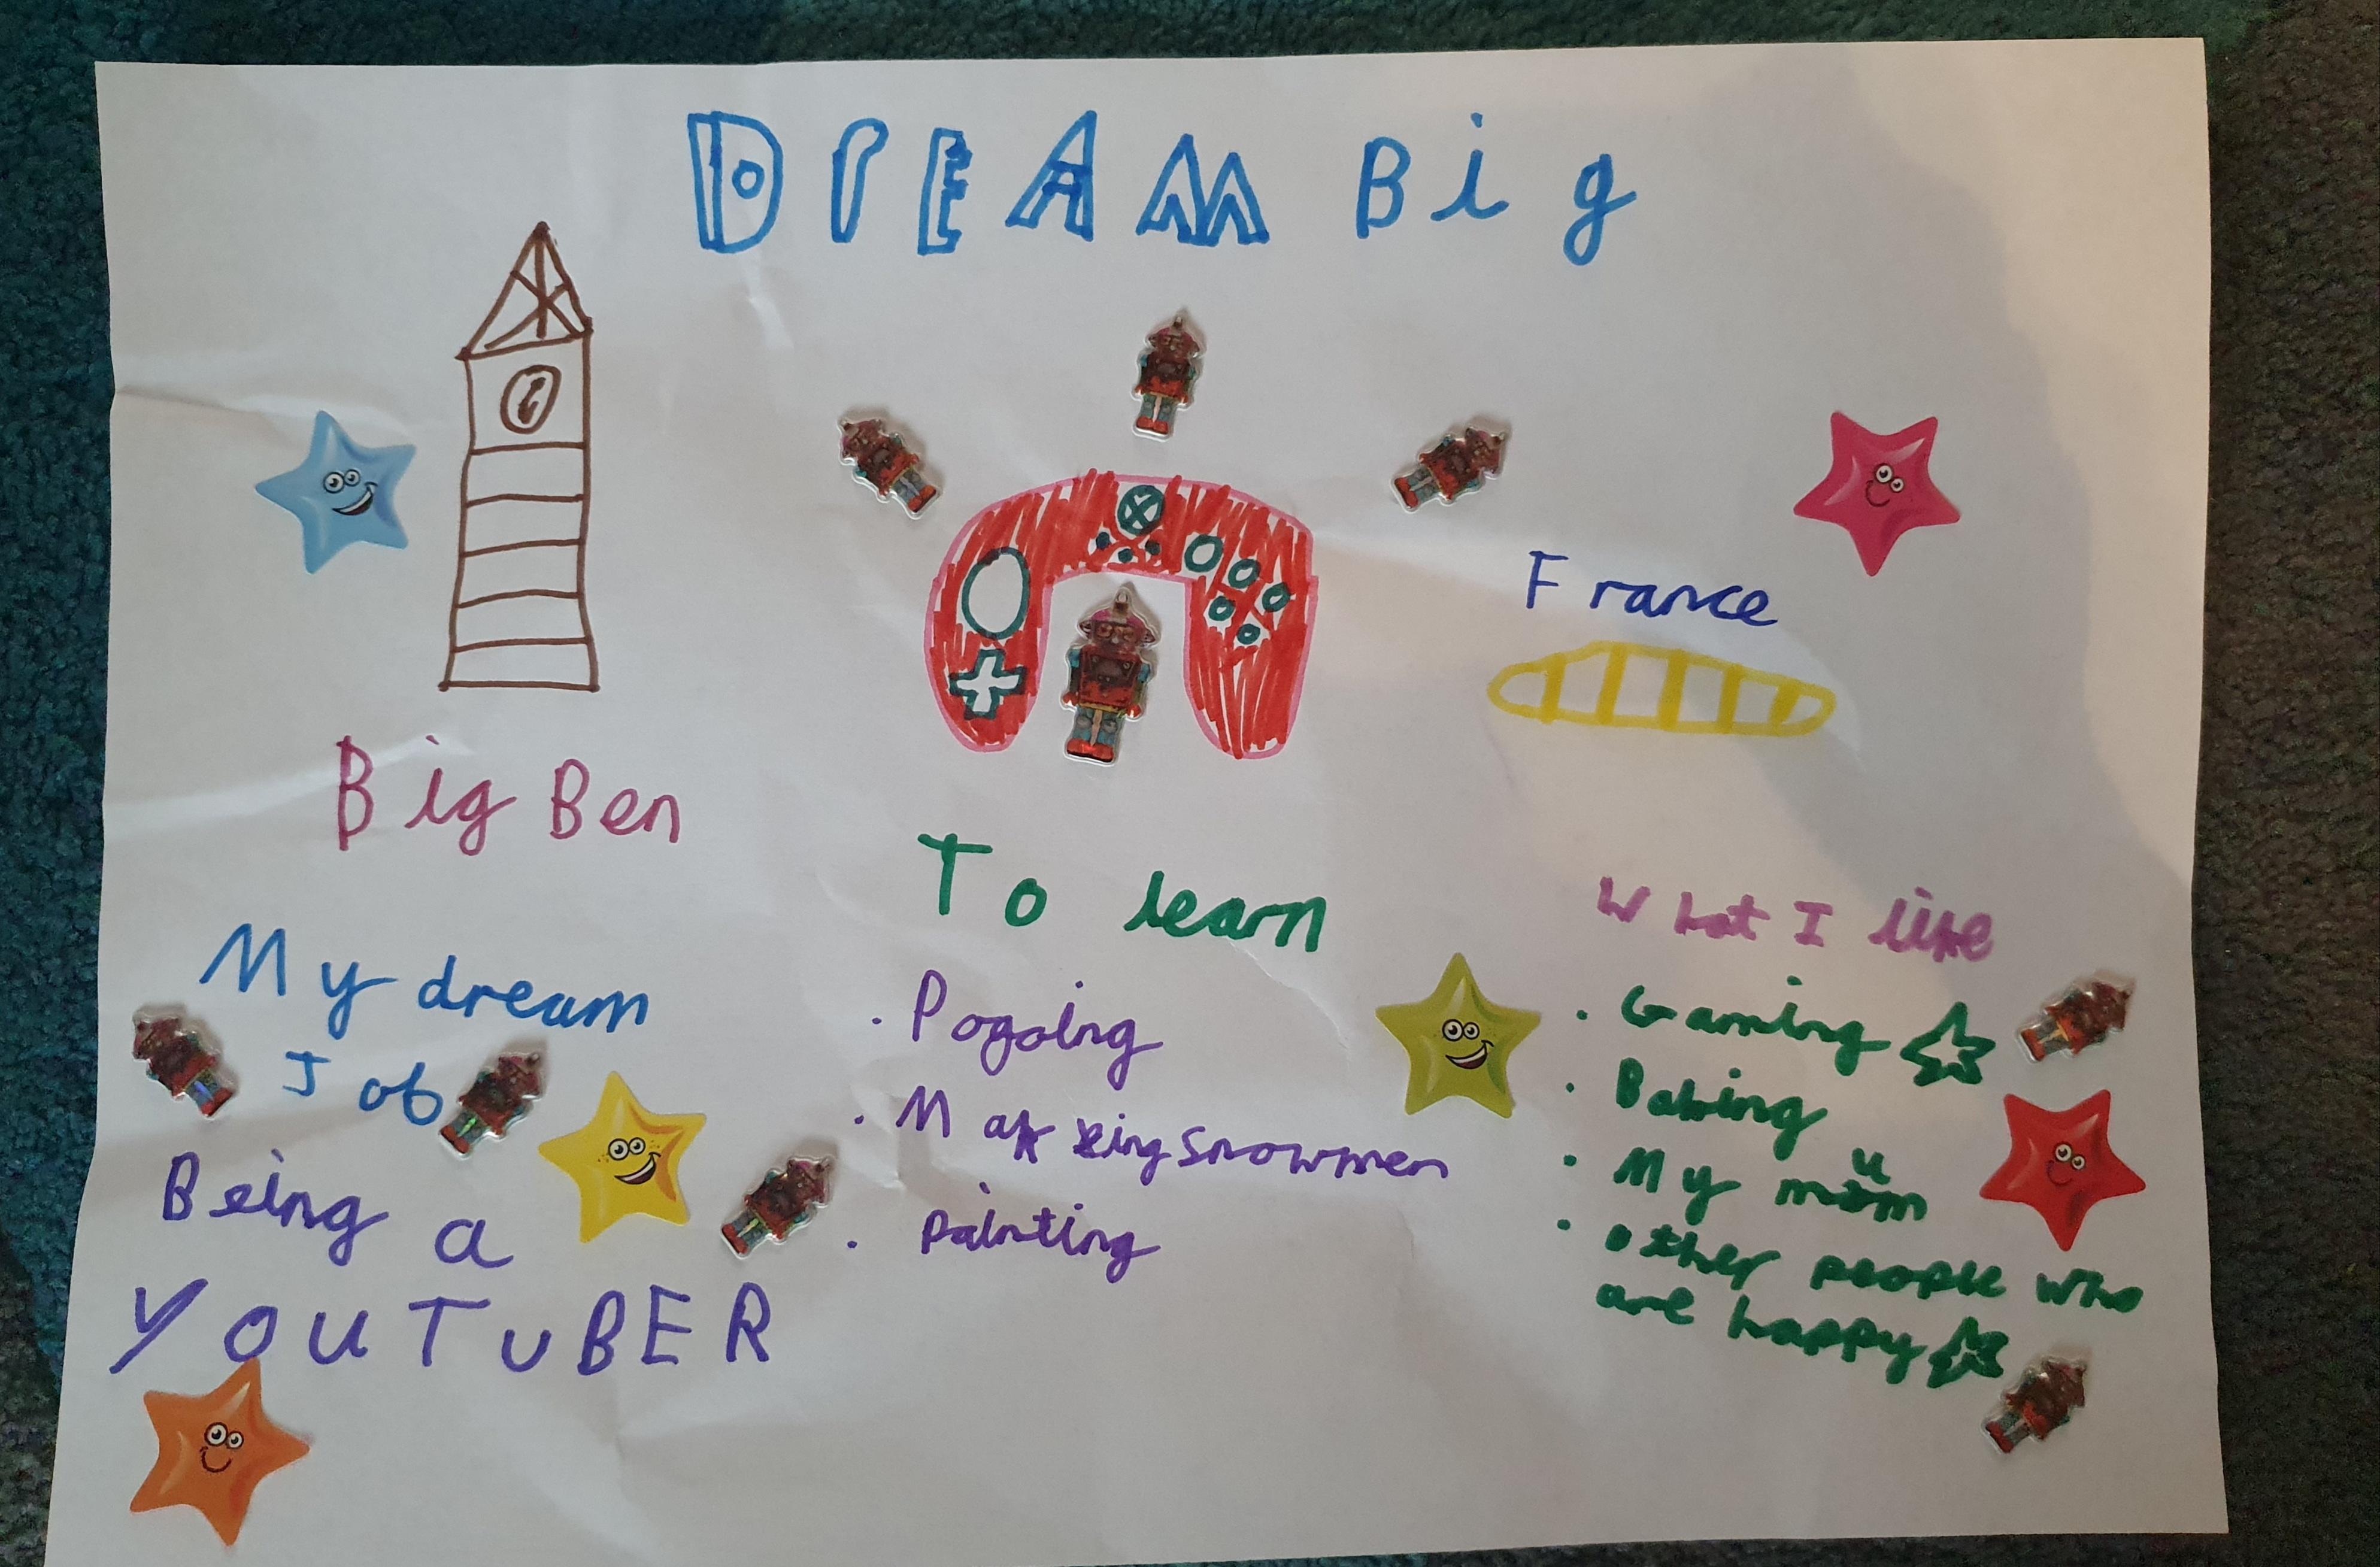 DrEAM Big
France
Big Ben
My dream
Job
Being a
YOUTUBER
To learn
· Pogoing
· Making snowmen
· Painting
What I like
· Gaming
· Baking
· My mum
· other people who
are happy